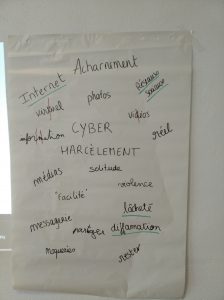 Internet Acharnement
Réseaux sociaux
virtuel photos
information CYBER vidéos réel
HARCÈLEMENT
médias solitude
"Facilité" violence
lâcheté
messagerie diffamation
moqueries